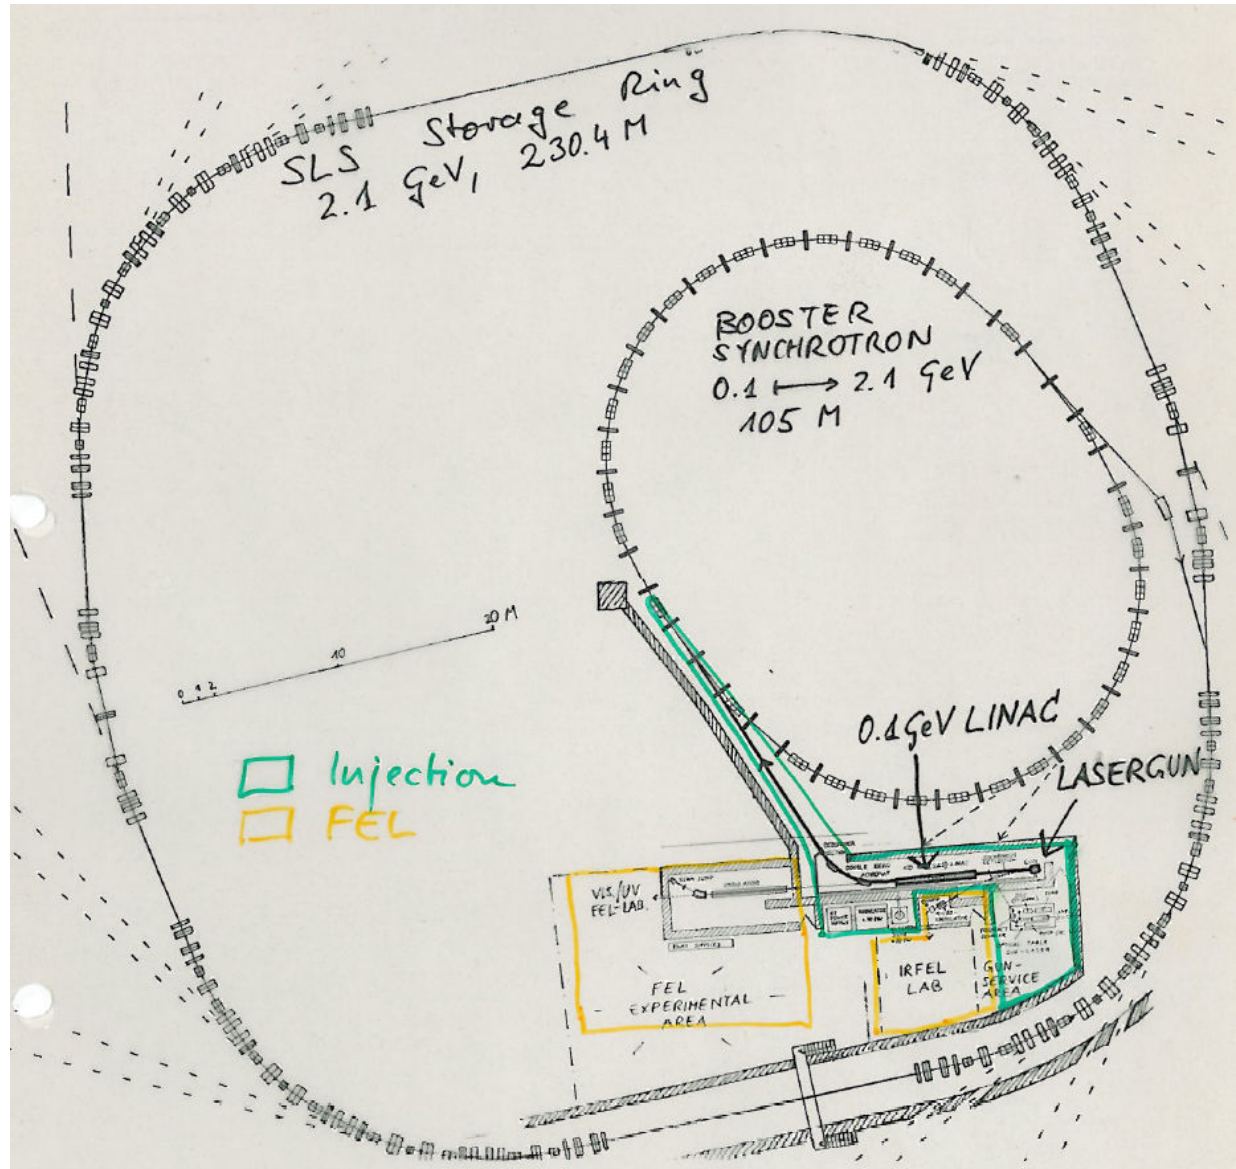 SLS Storage Ring
2.1 GeV, 230.4 M
BOOSTER
SYNCHROTRON
0.1 ↦ 2.1 GeV
105 M
0 1 2 10 20 M
0.1 GeV LINAC
LASERGUN
Injection
FEL
VIS./UV
FEL-LAB.
FEL
EXPERIMENTAL
AREA
IRFEL
LAB
GUN-
SERVICE
AREA